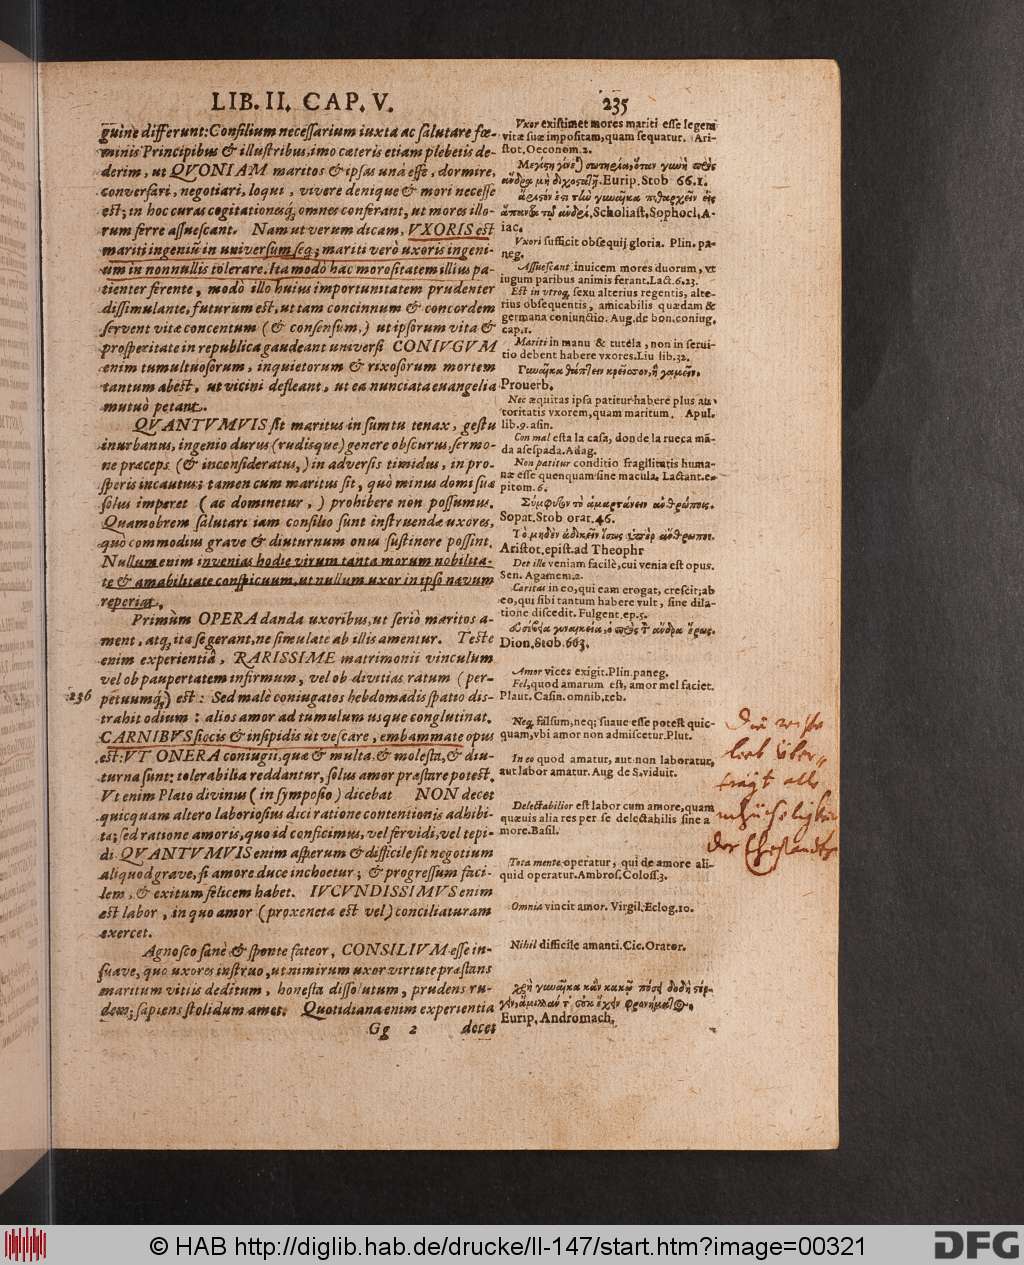 LIB. II. CAP. V. 235
guinè differunt: Consilium necessarium iuxta ac salutare fœ-
minis Principibus & illustribus, imo cæteris etiam plebeiis de-
derim, ut QVONIAM maritos & ipsas una esse, dormire,
conversari, negotiari, loqui, vivere denique & mori necesse
est; in hoc curas cogitationesq; omnes conferant, ut mores illo-
rum ferre assuescant. Nam ut verum dicam, VXORIS est
mariti ingeniũ in universum seq; mariti verò uxoris ingeni-
um in nonnullis tolerare. Ita modò hac morositatem illius pa-
tienter ferente, modò illo huius importunitatem prudenter
dissimulante, futurum est, ut tam concinnum & concordem
servent vitæ concentum (& consensum,) ut ipsorum vita &
prosperitate in republica gaudeant universi CONIVGVM
enim tumultuosorum, inquietorum & rixosorum mortem
tantum abest, ut vicini defleant, ut ea nunciata euangelia
mutuò petant.
QVANTVMVIS sit maritus in sumtu tenax, gestu
inurbanus, ingenio durus (rudisque) genere obscurus, sermo-
ne præceps (& inconsideratus,) in adversis timidus, in pro-
speris incautus; tamen cum maritus sit, quò minus domi suæ
solus imperet (ac dominetur,) prohibere non possumus.
Quamobrem salutari iam consilio sunt instruendæ uxores,
quò commodius grave & diuturnum onus sustinere possint.
Nullum enim invenias hodie virum tanta morum nobilita-
te & amabilitate conspicuum, ut nullum uxor in ipsi nævum
reperiat.
Primùm OPERA danda uxoribus, ut seriò maritos a-
ment, atq; ita se gerant, ne simulate ab illis amentur. Teste
enim experientiâ, RARISSIME matrimonii vinculum
vel ob paupertatem infirmum, vel ob divitias ratum (per-
236
petuumq;) est: Sed malè coniugatos hebdomadis spatio dis-
trahit odium: alios amor ad tumulum usque conglutinat.
CARNIBVS siccis & insipidis ut vescare, embammate opus
est: VT ONERA coniugii, quæ & multa & molesta, & diu-
turna sunt: tolerabilia reddantur, solus amor præstare potest.
Vt enim Plato divinus (in symposio) dicebat NON decet
quicquam altero laboriosius dici ratione contentionis adhibi-
tæ; sed ratione amoris, quo id conficimus, vel fervidi, vel tepi-
di. QVANTVMVIS enim asperum & difficile sit negotium
aliquod grave, si amore duce inchoetur; & progressum faci-
lem, & exitum felicem habet. IVCVNDISSIMVS enim
est labor, in quo amor (proxeneta est vel) conciliaturam
exercet.
Agnosco sanè & sponte fateor, CONSILIVM esse in-
suave, quo uxores instruo, ut nimirum uxor virtute præstans
maritum vitiis deditum, honesta dissolutum, prudens ru-
dem; sapiens stolidum amet. Quotidiana enim experientia
Gg 2 decet
Vxor existimet mores mariti esse legem
vitæ suæ impositam, quam sequatur. Ari-
stot. Oeconom. 2.
Eurip. Stob 66. 1.
Scholiast, Sophocl, A-
iac,
Vxori sufficit obsequij gloria. Plin. pa-
neg.
Assuescant invicem mores duorum, vt
iugum paribus animis ferant. Lact. 6. 23.
Est in vtroq; sexu alterius regentis, alte-
rius obsequentis, amicabilis quædam &
germana coniunctio. Aug. de bon. coniug.
cap. 1.
Mariti in manu & tutela, non in serui-
tio debent habere vxores. Liu lib. 32.
Prouerb.
Nec æquitas ipsa patitur habere plus au-
toritatis vxorem, quam maritum. Apul.
lib. 9. asin.
Con mal esta la casa, donde la rueca mã-
da al espada. Adag.
Non patitur conditio fragilitatis huma-
næ esse quenquam sine macula. Lactant. e-
pitom. 6.
Σύμφυτον τὸ ἁμαρτάνειν ἀνθρώποις.
Sopat. Stob orat. 46.
Aristot. epist. ad Theophr
Det ille veniam facilè, cui venia est opus.
Sen. Agamem. 2.
Caritas in eo, qui eam erogat, crescit; ab
eo, qui sibi tantum habere vult, sine dila-
tione discedit. Fulgent. ep. 5.
Dion. Stob. 663.
Amor vices exigit. Plin. paneg.
Fel, quod amarum est, amor mel faciet.
Plaut. Casin. omnib. reb.
Neq; falsum, neq; suaue esse potest quic-
quam, vbi amor non admiscetur. Plut.
In eo quod amatur, aut non laboratur,
aut labor amatur. Aug de S. viduit.
Delectabilior est labor cum amore, quam
quæuis alia res per se delectabilis sine a-
more. Basil.
Tota mente operatur, qui de amore ali-
quid operatur. Ambros. Coloss. 3.
Omnia vincit amor. Virgil. Eclog. 10.
Nihil difficile amanti. Cic. Orator.
Eurip. Andromach.
lieb über-
tragt alle
der Ehestandts
© HAB http://diglib.hab.de/drucke/ll-147/start.htm?image=00321
DFG